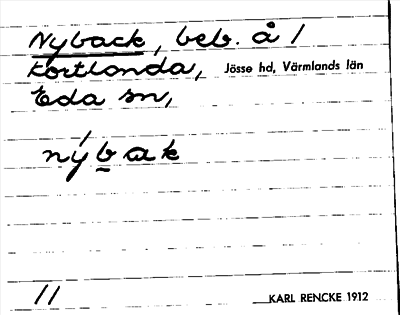 Nyback, beb. å /
Kortlanda, Jösse hd, Värmlands län
Eda sn,
nýbak
11
KARL RENCKE 1912